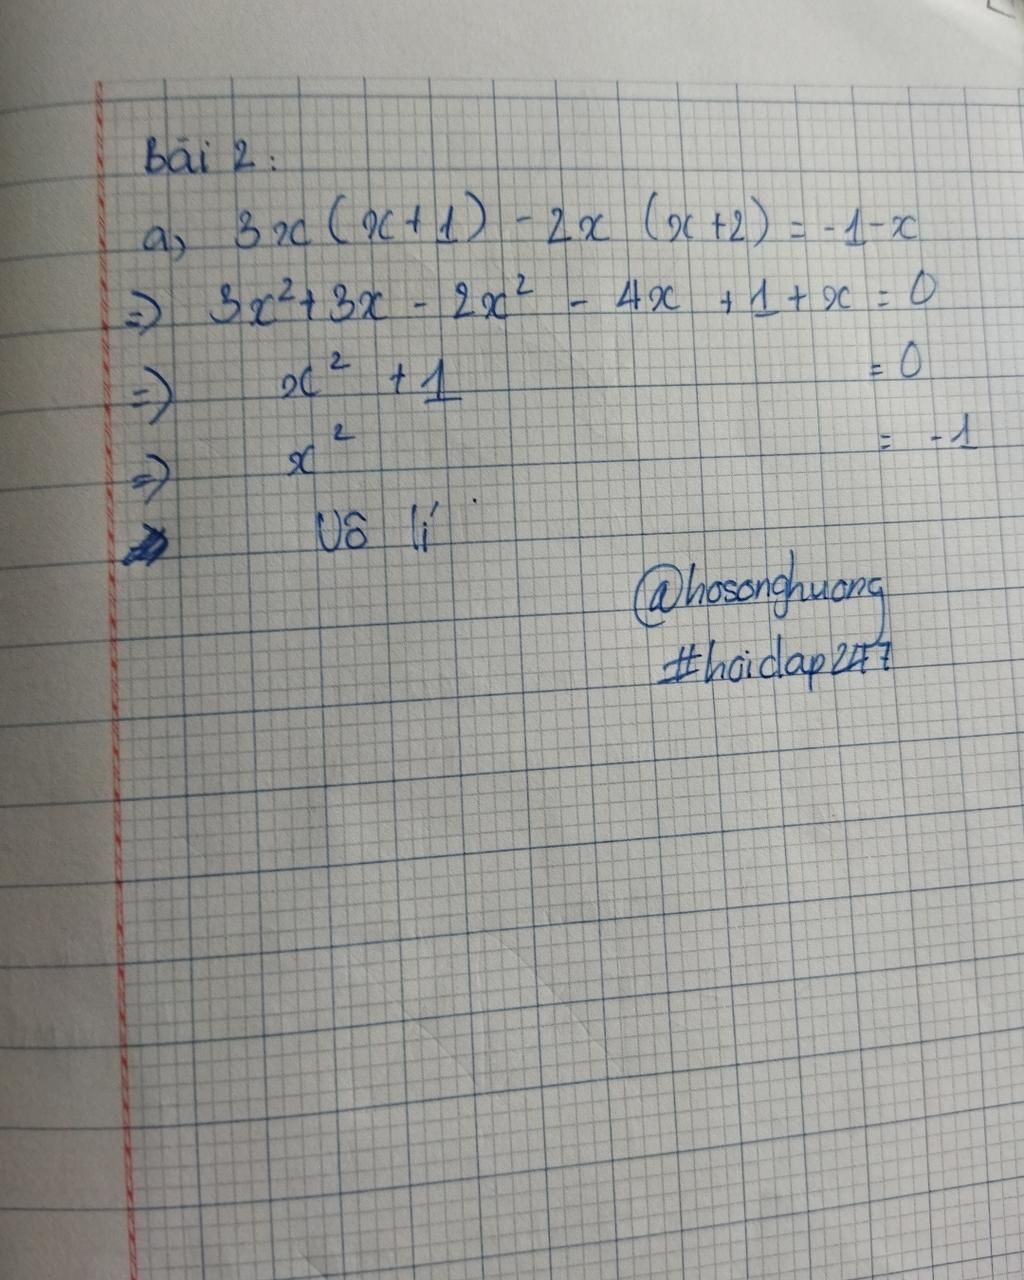 Bài 2:
a, 3x(x+1) - 2x (x+2) = -1-x
=> 3x² + 3x - 2x² - 4x + 1 + x = 0
=> x² + 1 = 0
=> x² = -1
Vô lí
@hosonghuong
#hoidap247